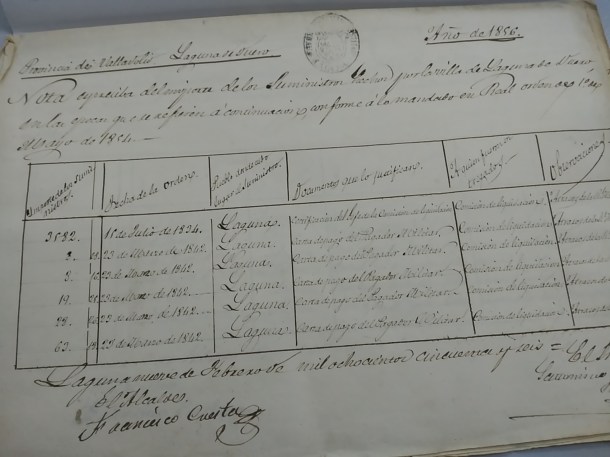 Provincia de Valladolid Laguna de Duero
Año de 1856.
Nota espresiva del importe de los Suministros hechos por la villa de Laguna de Duero,
en las epocas que se refieren á continuacion, conforme á lo mandado en Real orden
Mayo de 1854.
Importe de los Suministros. Fecha de la Orden. Pueblo donde tubo lugar el Suministro. Documentos que lo justifican. A quien fueron entregados. Observaciones.
3522. 11 de Julio de 1834. Laguna. Certificacion del Gefe de la Comision de liquidacion Comision de liquidacion
2. 23 de Marzo de 1842. Laguna. Carta de pago del Pagador Militar. Comision de liquidacion
8. 23 de Marzo de 1842. Laguna. Carta de pago del Pagador Militar. Comision de liquidacion
19. 23 de Marzo de 1842. Laguna. Carta de pago del Pagador Militar. Comision de liquidacion
28. 23 de Marzo de 1842. Laguna. Carta de pago del Pagador Militar. Comision de liquidacion
63. 23 de Marzo de 1842. Laguna. Carta de pago del Pagador Militar. Comision de liquidacion
Laguna nueve de Febrero de mil ochocientos cincuenta y seis = El
El Alcalde.
Francisco Cuesta